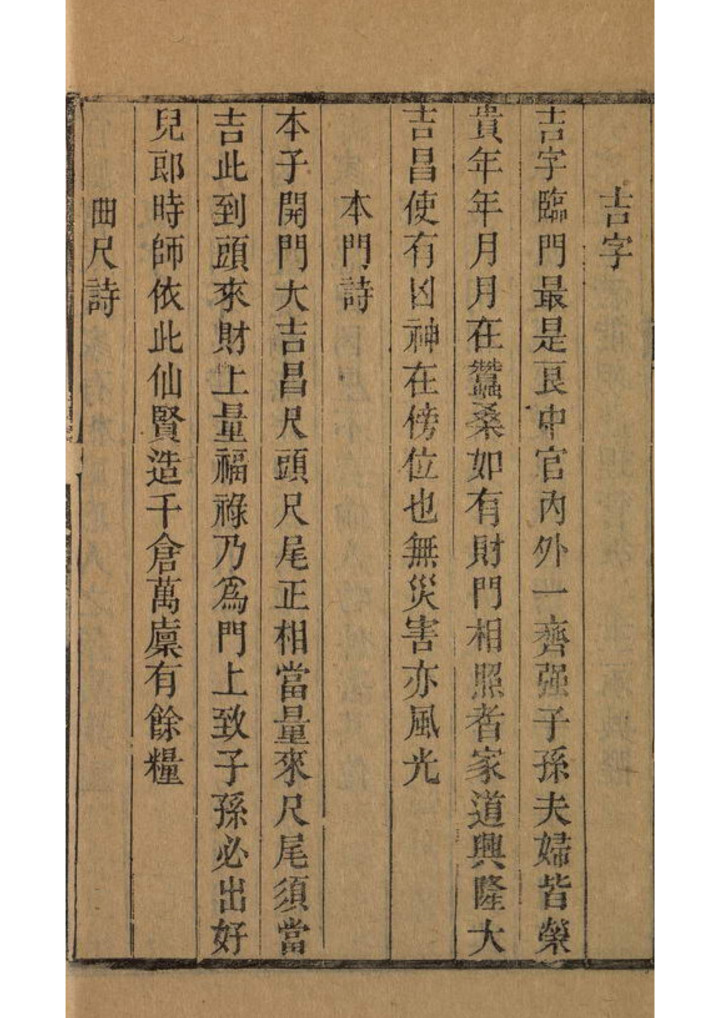 吉字
吉字臨門最是良中官內外一齊强子孫夫婦皆榮
貴年年月月在蠶桑如有財門相照者家道興隆大
吉昌使有凶神在傍位也無災害亦風光
本門詩
本子開門大吉昌尺頭尺尾正相當量來尺尾須當
吉此到頭來財上量福祿乃為門上致子孫必出好
兒郎時師依此仙賢造千倉萬廩有餘糧
曲尺詩